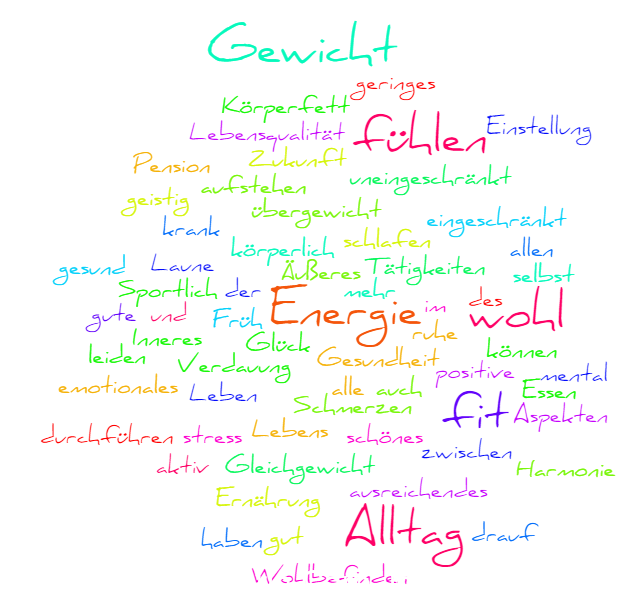 Gewicht
geringes
Körperfett
Lebensqualität fühlen Einstellung
Pension Zukunft
aufstehen uneingeschränkt
geistig übergewicht
krank eingeschränkt
körperlich schlafen allen
gesund Laune Äußeres Tätigkeiten selbst
Sportlich der mehr
gute und Früh Energie im des wohl
Inneres Glück ruhe
leiden Verdauung Gesundheit können
positive mental
emotionales Leben alle auch Essen
Schmerzen fit Aspekten
durchführen stress Lebens schönes
zwischen
aktiv Gleichgewicht Harmonie
Ernährung ausreichendes
haben gut Alltag drauf
Wohlbefinden